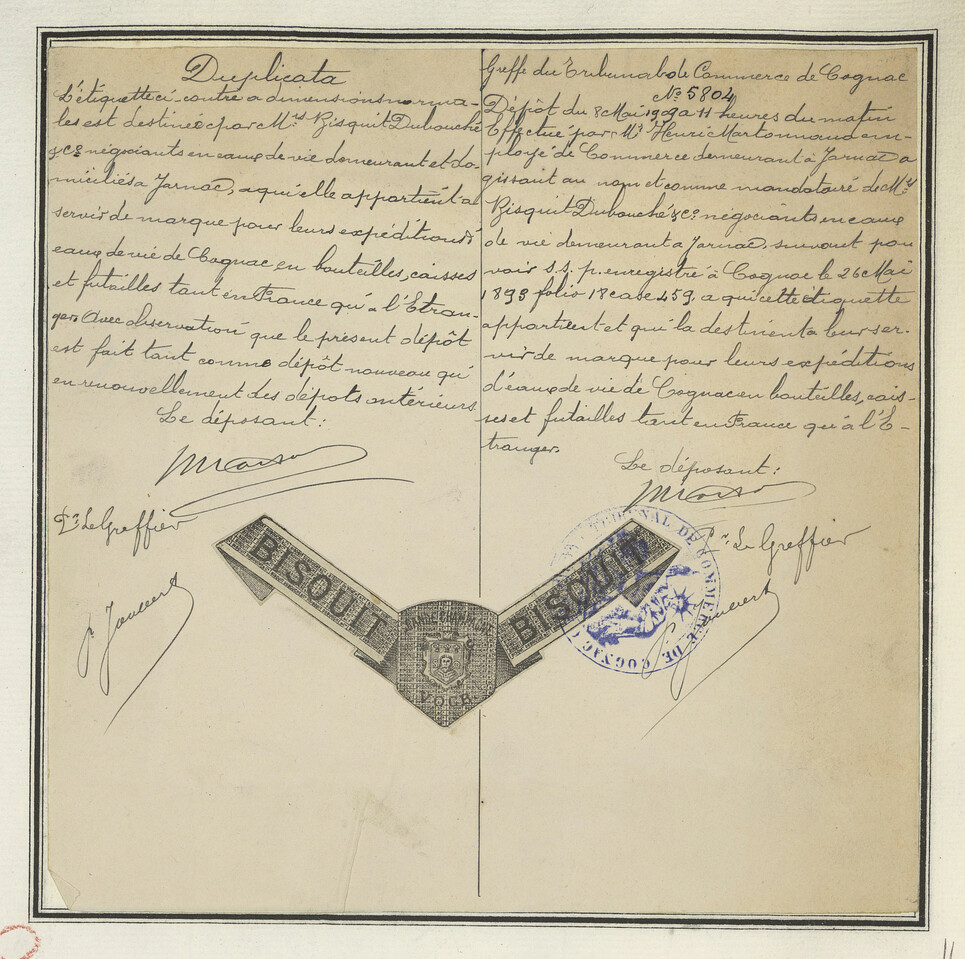 Duplicata
L'étiquette ci-contre a dimensions norma-
les est destinée par M.rs Bisquit Dubouché
& Co négociants en eaux de vie demeurant et do-
miciliés a Jarnac, a qui elle appartient a
servir de marque pour leurs expéditions d'
eaux de vie de Cognac en bouteilles, caisses
et futailles tant en France qu'a l'Etran-
ger. Avec observation que le présent dépôt
est fait tant comme dépôt nouveau qu'
en renouvellement des dépots antérieurs
Le déposant:
Pr Le Greffier
Greffe du Tribunal de Commerce de Cognac
No 5804
Dépôt du 8 Mai 1909 a 11 heures du matin
Effectué par Mr Henri Martonnaud em-
ployé de Commerce demeurant à Jarnac a
gissant au nom et comme mandataire de M.rs
Bisquit Dubouché & Co négociants en eaux
de vie demeurant a Jarnac, suivant pou
voir s.s.p. enregistré à Cognac le 26 Mai
1893 folio 18 case 459, a qui cette étiquette
appartient et qui la destinent a leur ser-
vir de marque pour leurs expéditions
d'eaux de vie de Cognac en bouteilles, cais-
ses et futailles tant en France qu'à l'E-
tranger.
Le déposant:
Pr Le Greffier
BISQUIT
BISQUIT
TRIBUNAL DE COMMERCE DE COGNAC
11